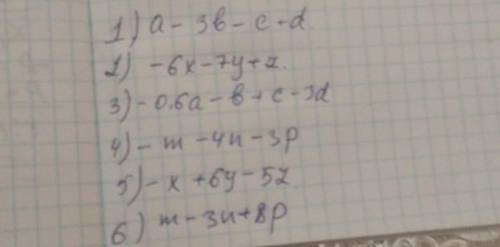 1) a - 3b - c + d
2) -6x - 7y + z.
3) -0.6a - b + c - 3d
4) - m - 4n - 3p
5) - x + 6y - 5z.
6) m - 3n + 8p